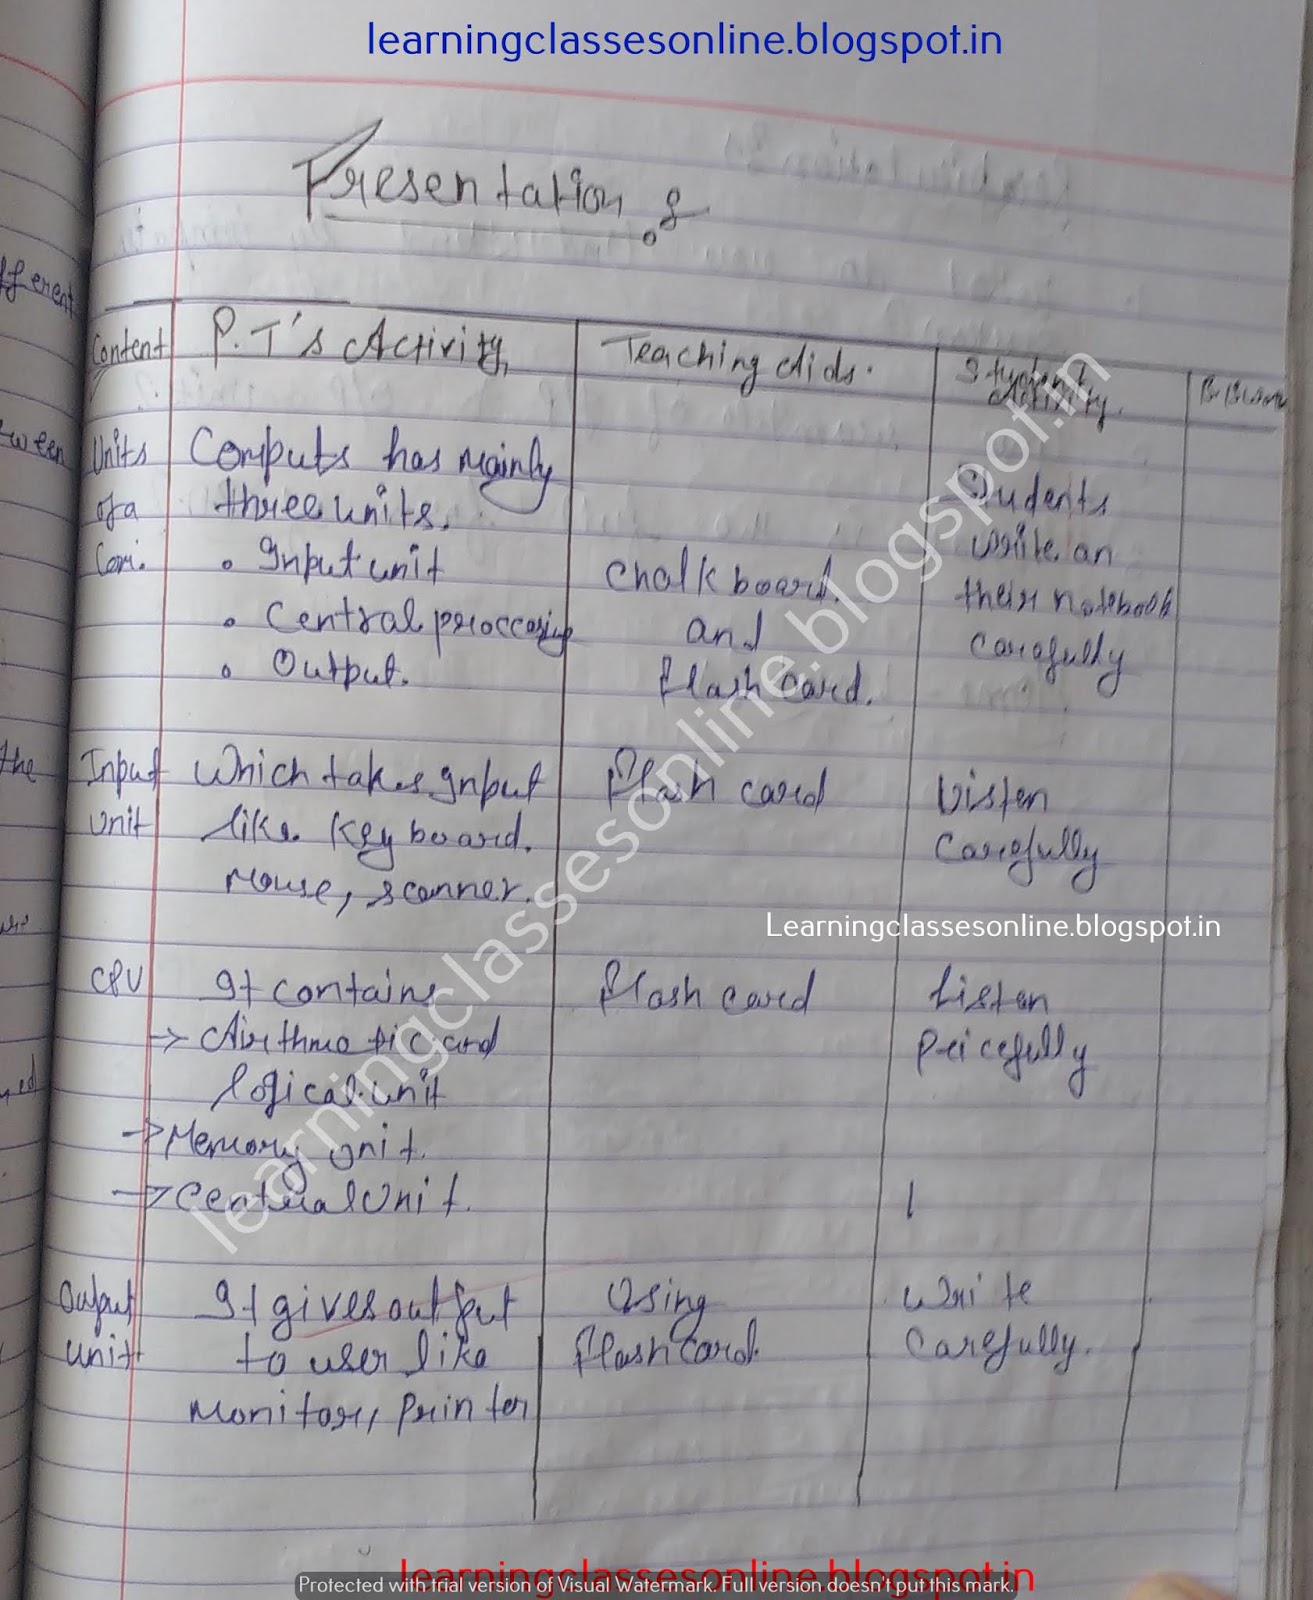 learningclassesonline.blogspot.in
Presentation :
Content P.T's Activity Teaching Aids. Student Activity.
Units Computs has mainly
of a three units.
Com. • Input unit
• Central proccesing
• Output.
Chalk board.
and
Flash card.
Students
write an
their notebook
carefully
Input Which takes Input Flash card Listen
unit like Keyboard. Carefully
Mouse, scanner.
Learningclassesonline.blogspot.in
CPU It contains Flash card Listen
→ Airthmatic and Pricefully
logical unit
→ Memory Unit.
→ Central Unit.
Output It gives output Using Write
unit to user like Flash card. Carefully.
Monitor, Printer
different
tween
the
learningclassesonline.blogspot.in
learningclassesonline.blogspot.in
Protected with trial version of Visual Watermark. Full version doesn't put this mark.